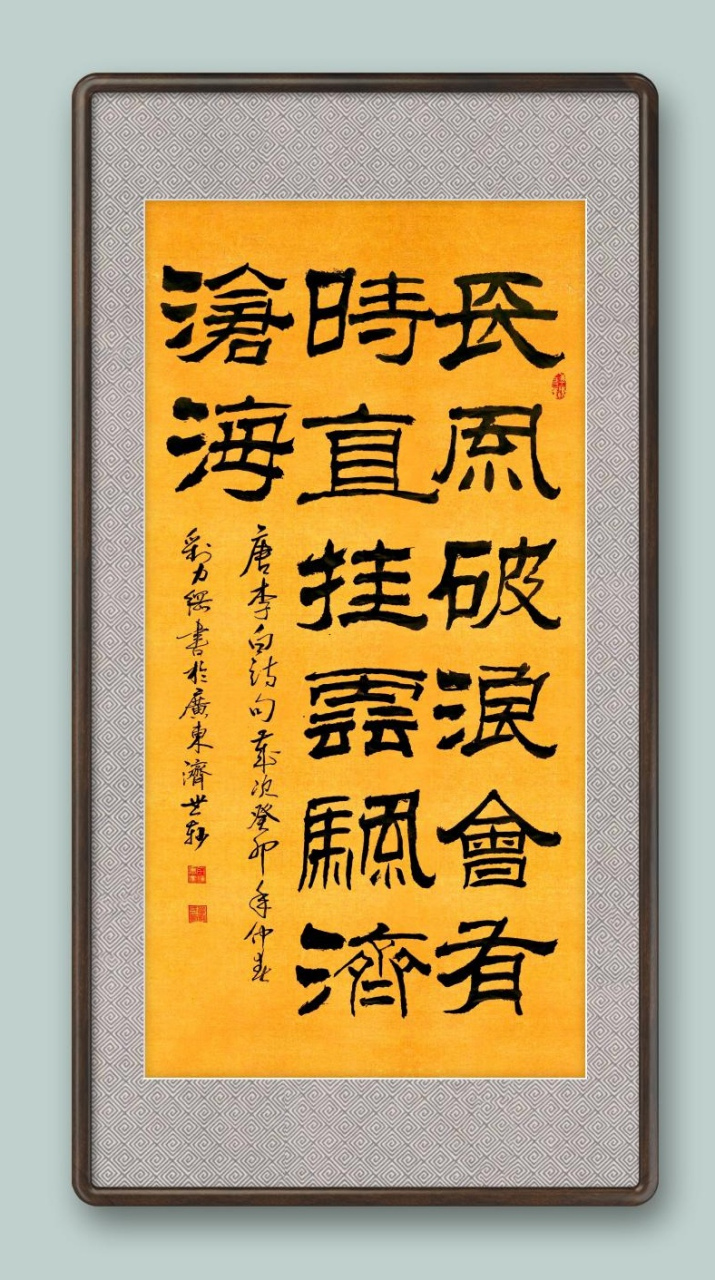 長風破浪會有
時直挂雲颿濟
滄海
唐李白詩句歲次癸卯年仲春
劉力書於廣東濟世軒